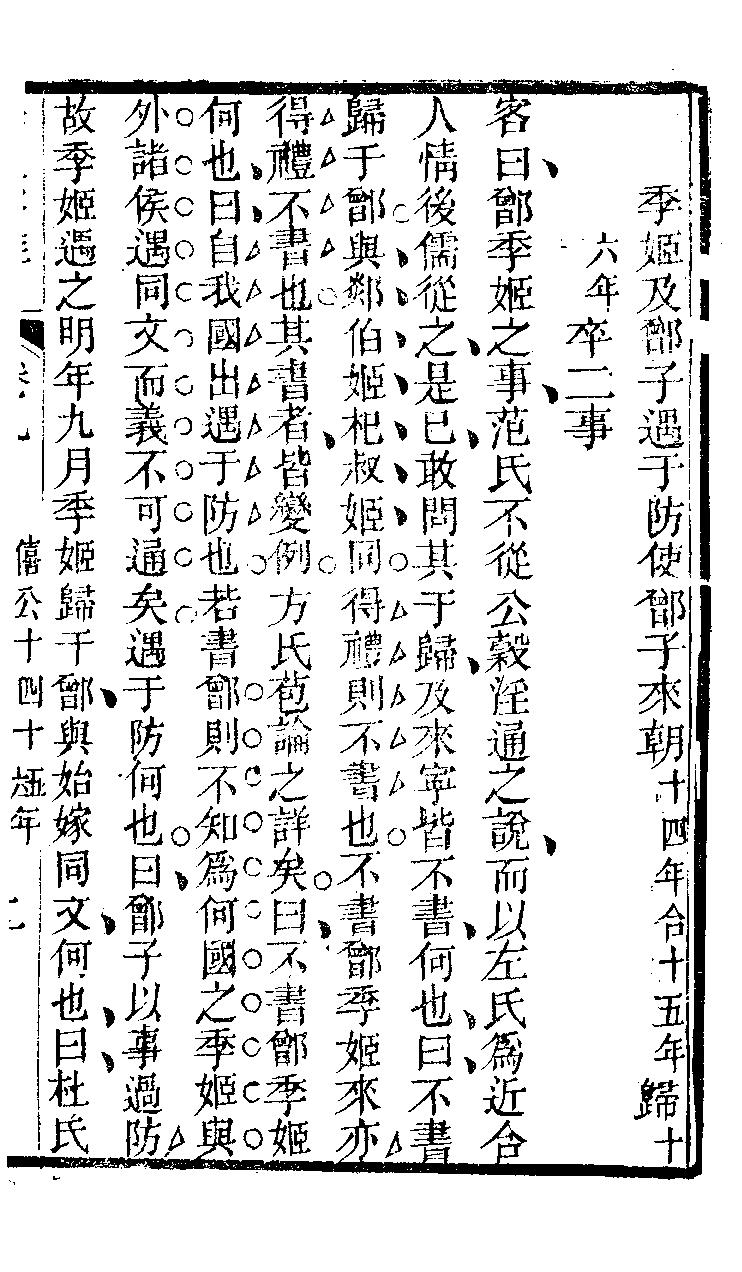 季姬及鄫子遇于防使鄫子來朝十四年合十五年歸十
六年卒二事
客曰鄫季姬之事范氏不從公穀淫通之說而以左氏爲近合
人情後儒從之是已敢問其于歸及來寧皆不書何也曰不書
歸于鄫與郯伯姬杞叔姬同得禮則不書也不書鄫季姬來亦
得禮不書也其書者皆變例方氏苞論之詳矣曰不書鄫季姬
何也曰自我國出遇于防也若書鄫則不知爲何國之季姬與
外諸侯遇同文而義不可通矣遇于防何也曰鄫子以事過防
故季姬遇之明年九月季姬歸于鄫與始嫁同文何也曰杜氏
僖公十四十五年